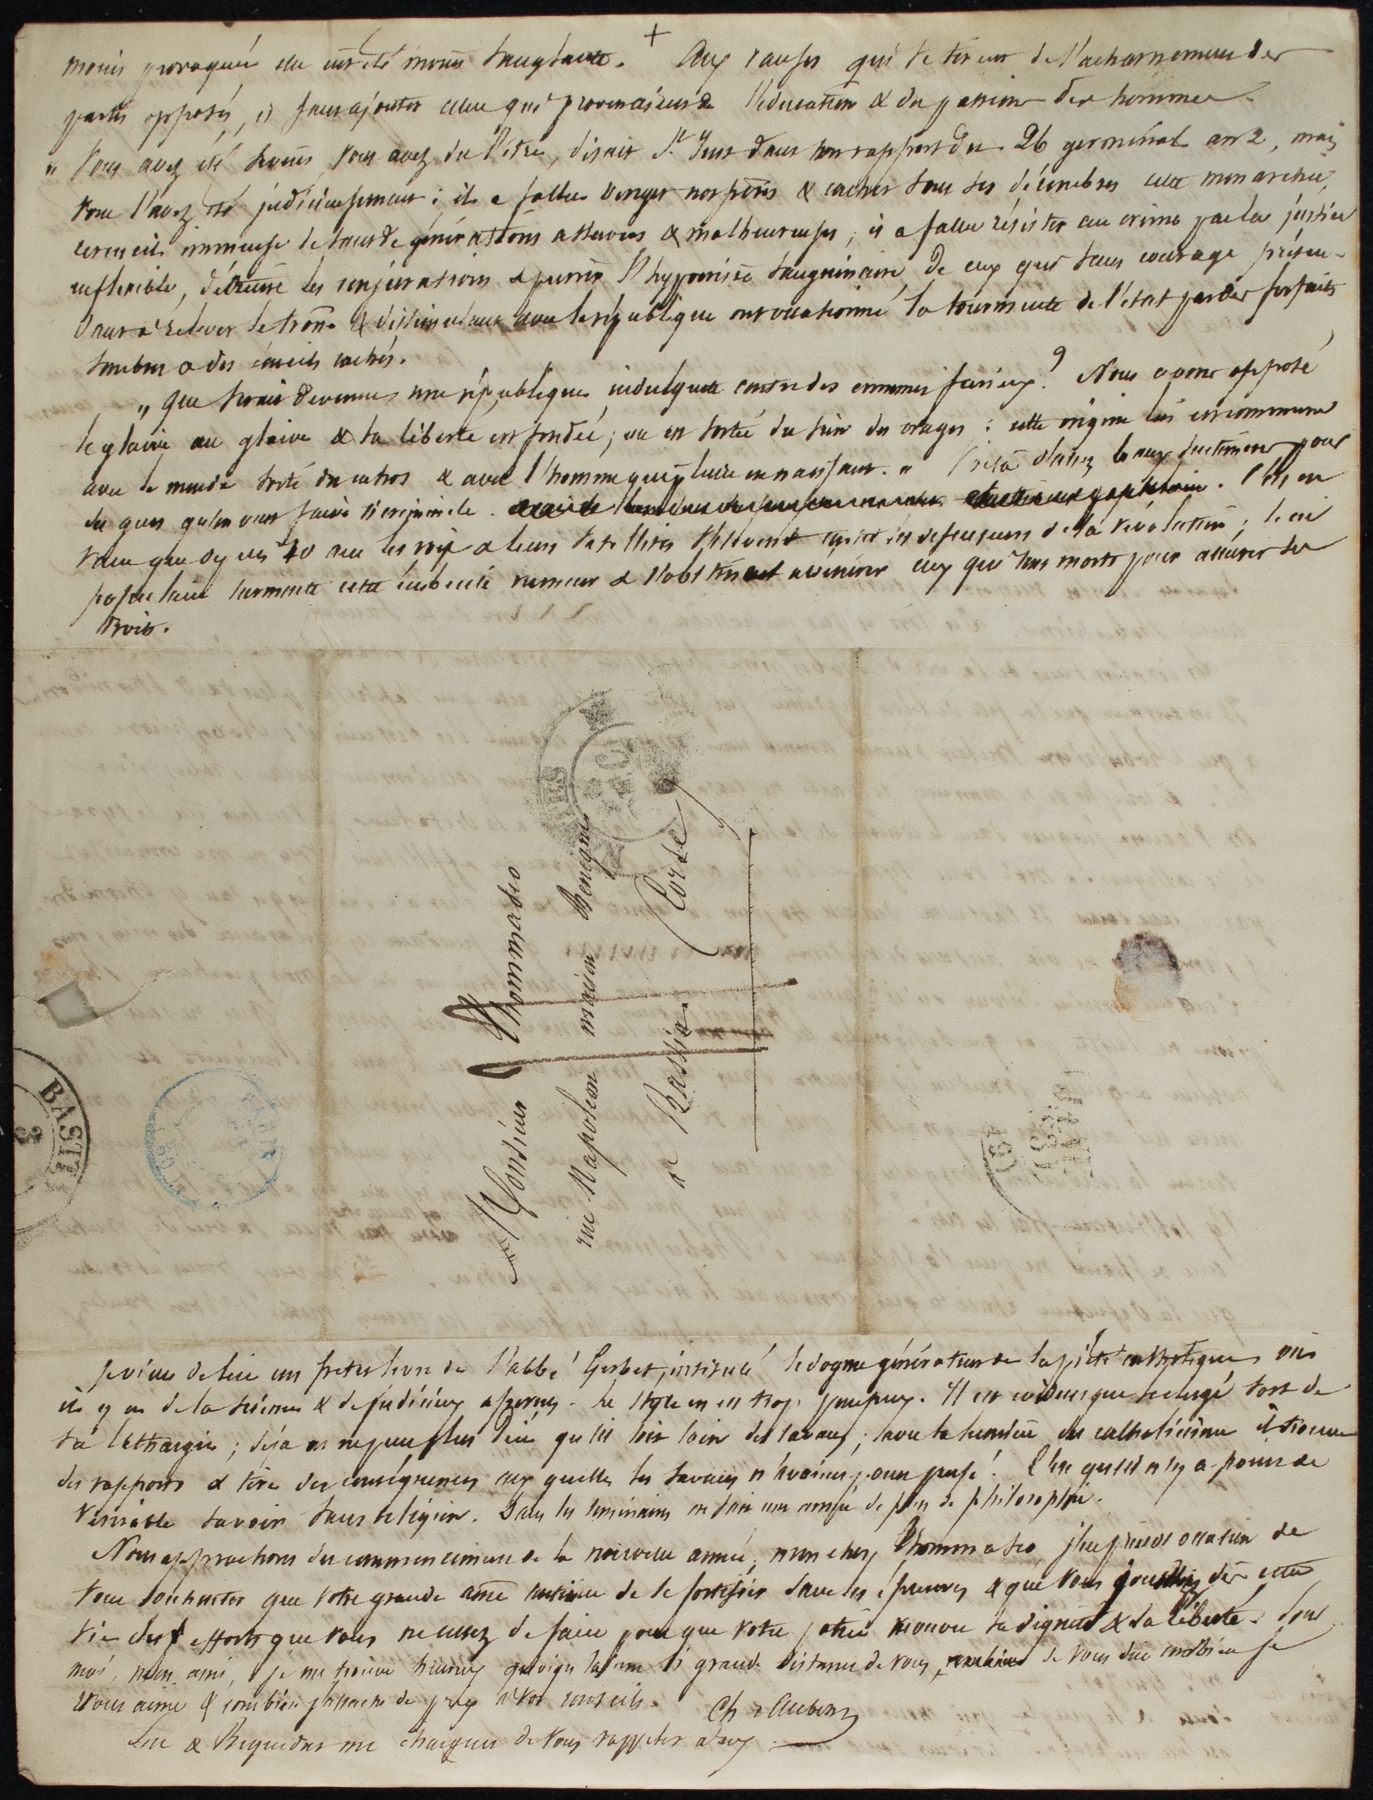 moins provoquée elle eut été moins sanglante. + Aux causes qui se tirent de l'acharnement des
partis opposés, il faut ajouter celle qui provenaient de l'éducation & des passions des hommes.
" Vous avez été sévères, vous avez dû l'être, disait St Just dans son rapport du 26 germinal an 2, mais
vous l'avez été judicieusement : il a fallu venger nos pères & cacher sous ses décombres cette monarchie,
cercueil immense de tant de générations asservies & malheureuses ; il a fallu résister au crime par la justice
inflexible, détruire les conjurations & punir l'hypocrisie sanguinaire de ceux qui sans courage préten-
dant relever le trône & dissimulant avec la république ont occasionné la tourmente de l'état par des forfaits
sombres & des écueils cachés.
" Que serait devenue une république indulgente contre des ennemis furieux ? Nous avons opposé
le glaive au glaive & la liberté est fondée ; elle est sortie du sein des orages : cette origine lui est commune
avec le monde sorti du cahos & avec l'homme qui pleure en naissant. " Voilà d'assez beaux sentimens pour
des gens qu'on veut faire
vain que depuis 40 ans les rois & leurs satellites calomnient les défenseurs de la révolution ; le cri
populaire surmonte cette imbécile rumeur & s'obstine à vénérer ceux qui sont morts pour assurer ses
droits.
Monsieur Thommaseo
rue Napoléon maison Benigne
à Bastia. (Corse)
BASTIA
3
Je viens de lire un petit livre de l'abbé Gerbet, intitulé le dogme générateur de la piété catholique où
il y a de la science & de judicieux aperçus. Le style en est trop pompeux. Il est évident que le clergé sort de
sa léthargie ; déjà on ne peut plus dire qu'il soit loin des travaux ; avec la lumière du catholicisme il trouve
des rapports & tire des conséquences auxquelles les savans n'avaient point pensé. C'est qu'il n'y a point de
véritable savoir sans religion. Dans les séminaires on fait une année de plus de philosophie.
Nous approchons du commencement de la nouvelle année, mon cher Thommaseo je prends occasion de
vous souhaiter que votre grande âme continue de se fortifier dans les épreuves & que vous jouissiez dès cette
vie des efforts que vous ne cessez de faire pour que votre patrie recouvre sa dignité & sa liberté. Pour
moi, mon ami, je me trouve heureux quoiqu'à une si grande distance de vous, de vous dire combien je
vous aime & combien j'attache de prix à vos conseils. Ch. d'Aubenz
& Requedat me chargent de vous rappeler à eux.